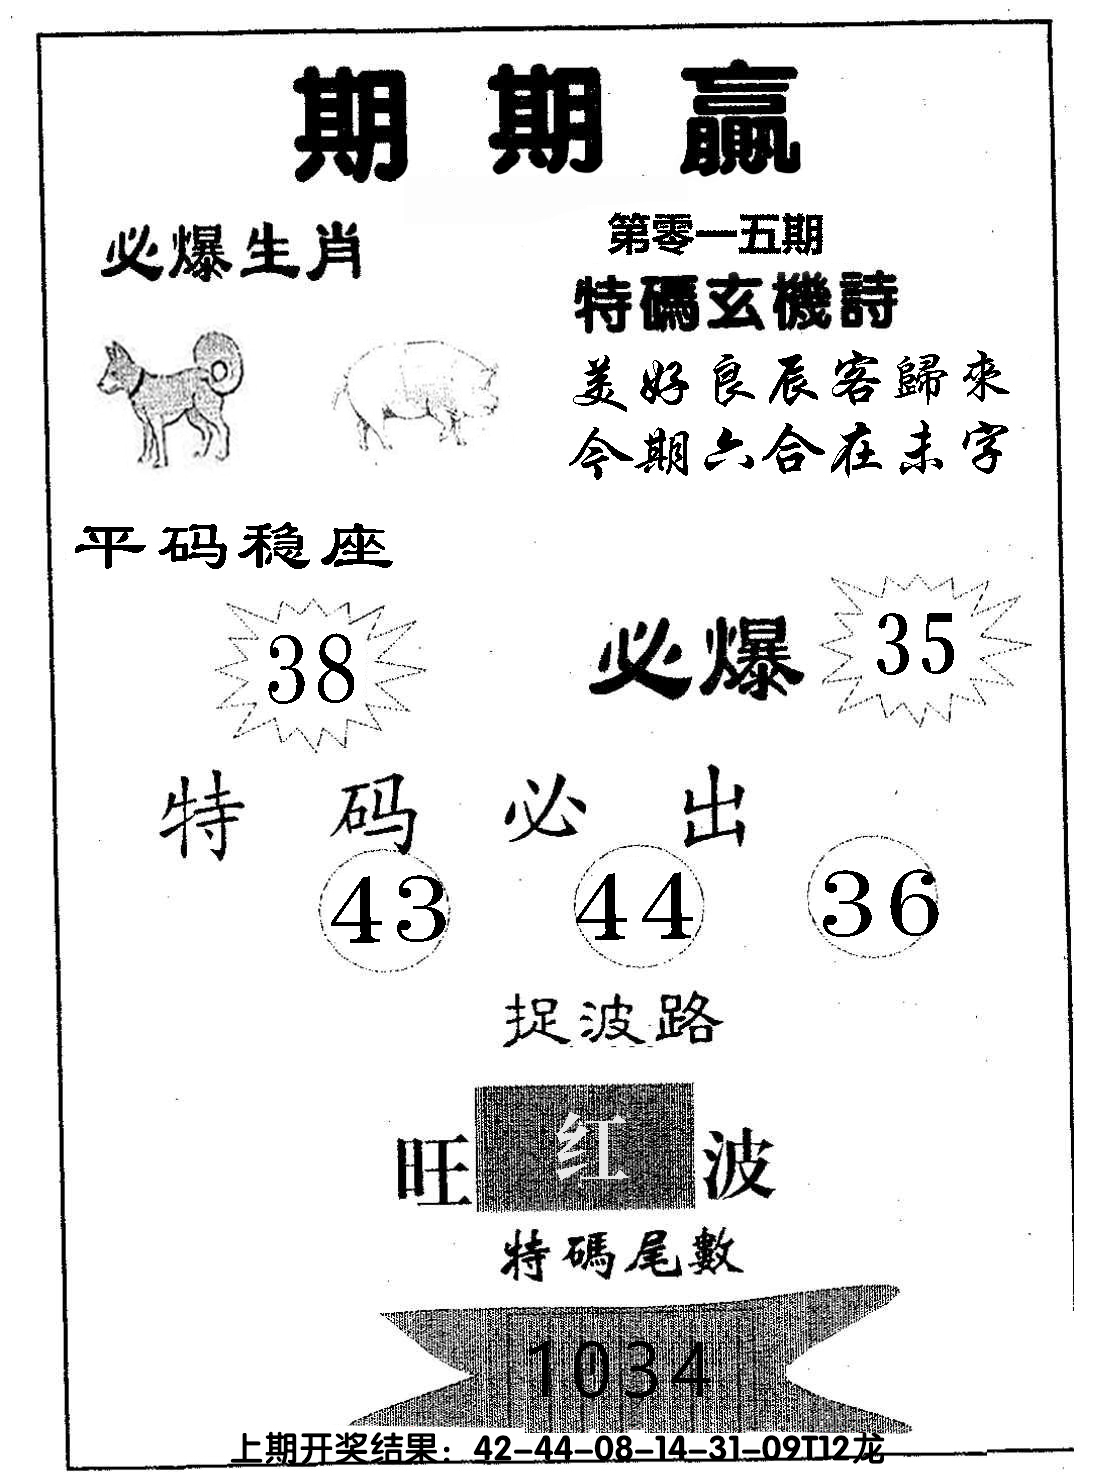 期期贏
必爆生肖
第零一五期
特碼玄機詩
美好良辰客歸來
今期六合在未字
平码稳座
38
必爆
35
特码必出
43
44
36
捉波路
旺红波
特碼尾數
1034
上期开奖结果：42-44-08-14-31-09T12龙